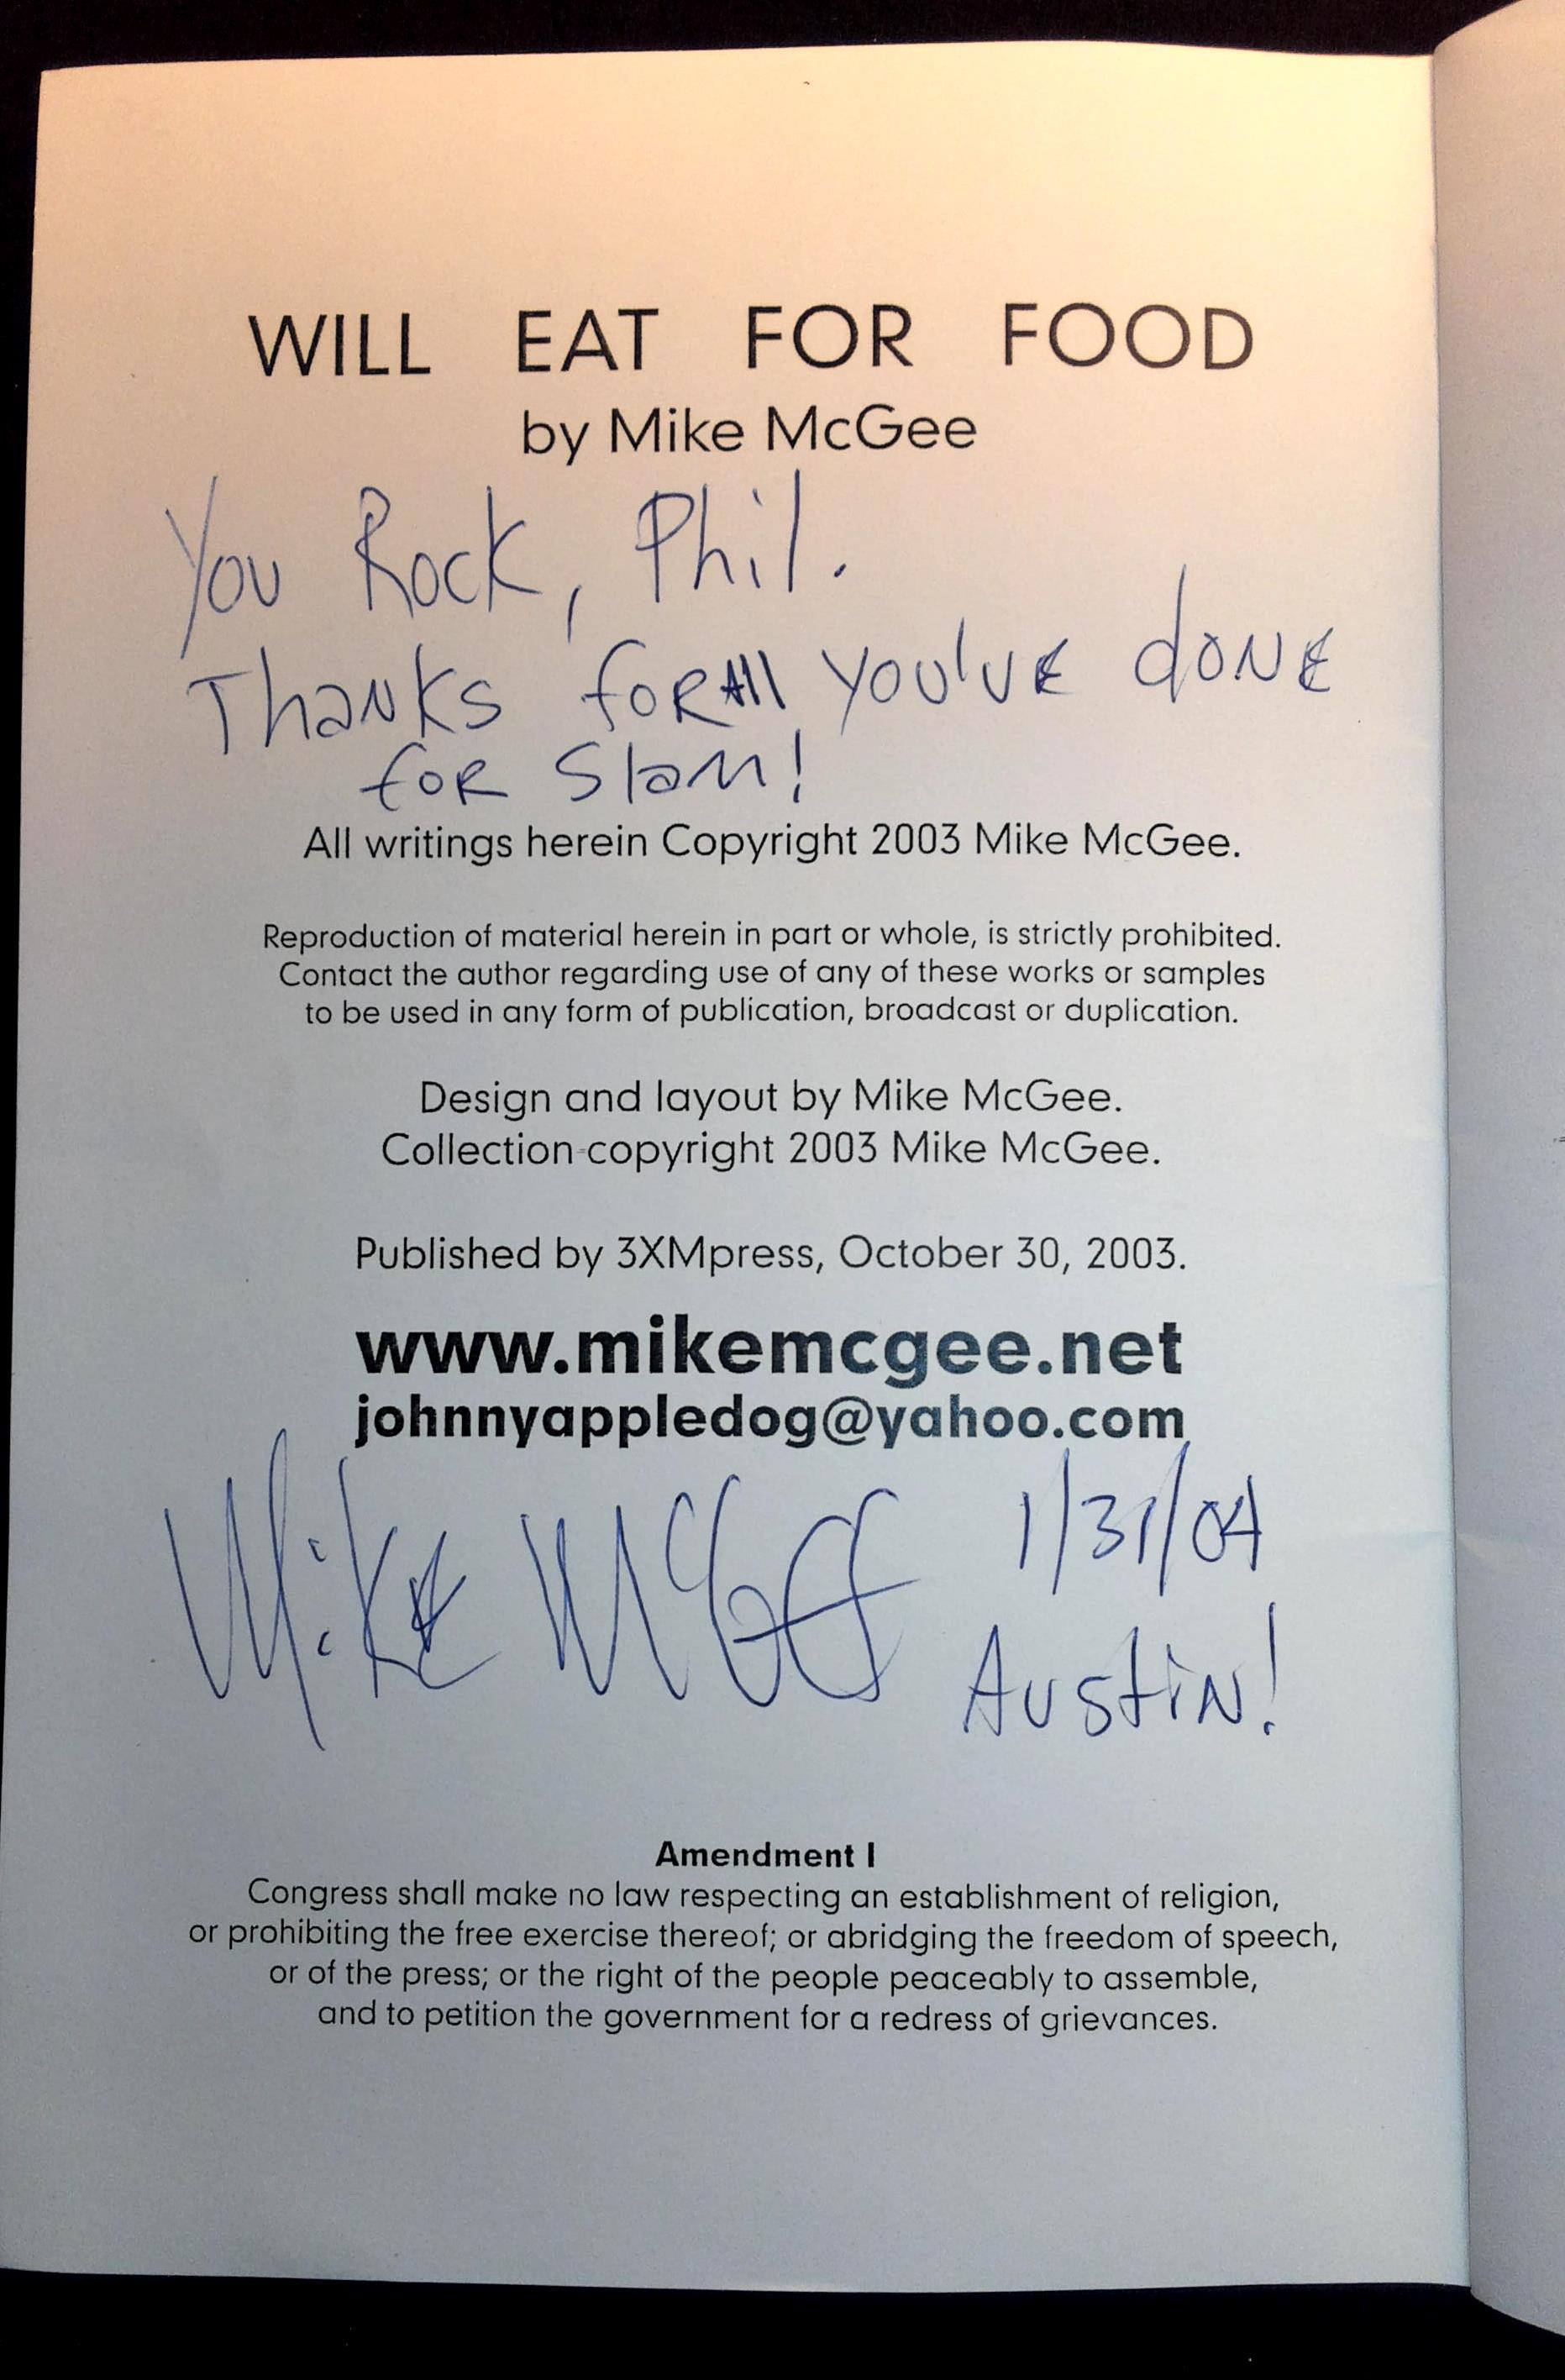 WILL EAT FOR FOOD
by Mike McGee
You Rock, Phil.
Thanks for All you've done
for Slam!
All writings herein Copyright 2003 Mike McGee.
Reproduction of material herein in part or whole, is strictly prohibited.
Contact the author regarding use of any of these works or samples
to be used in any form of publication, broadcast or duplication.
Design and layout by Mike McGee.
Collection copyright 2003 Mike McGee.
Published by 3XMpress, October 30, 2003.
www.mikemcgee.net
johnnyappledog@yahoo.com
Mike McGee 1/31/04
Austin!
Amendment I
Congress shall make no law respecting an establishment of religion,
or prohibiting the free exercise thereof; or abridging the freedom of speech,
or of the press; or the right of the people peaceably to assemble,
and to petition the government for a redress of grievances.